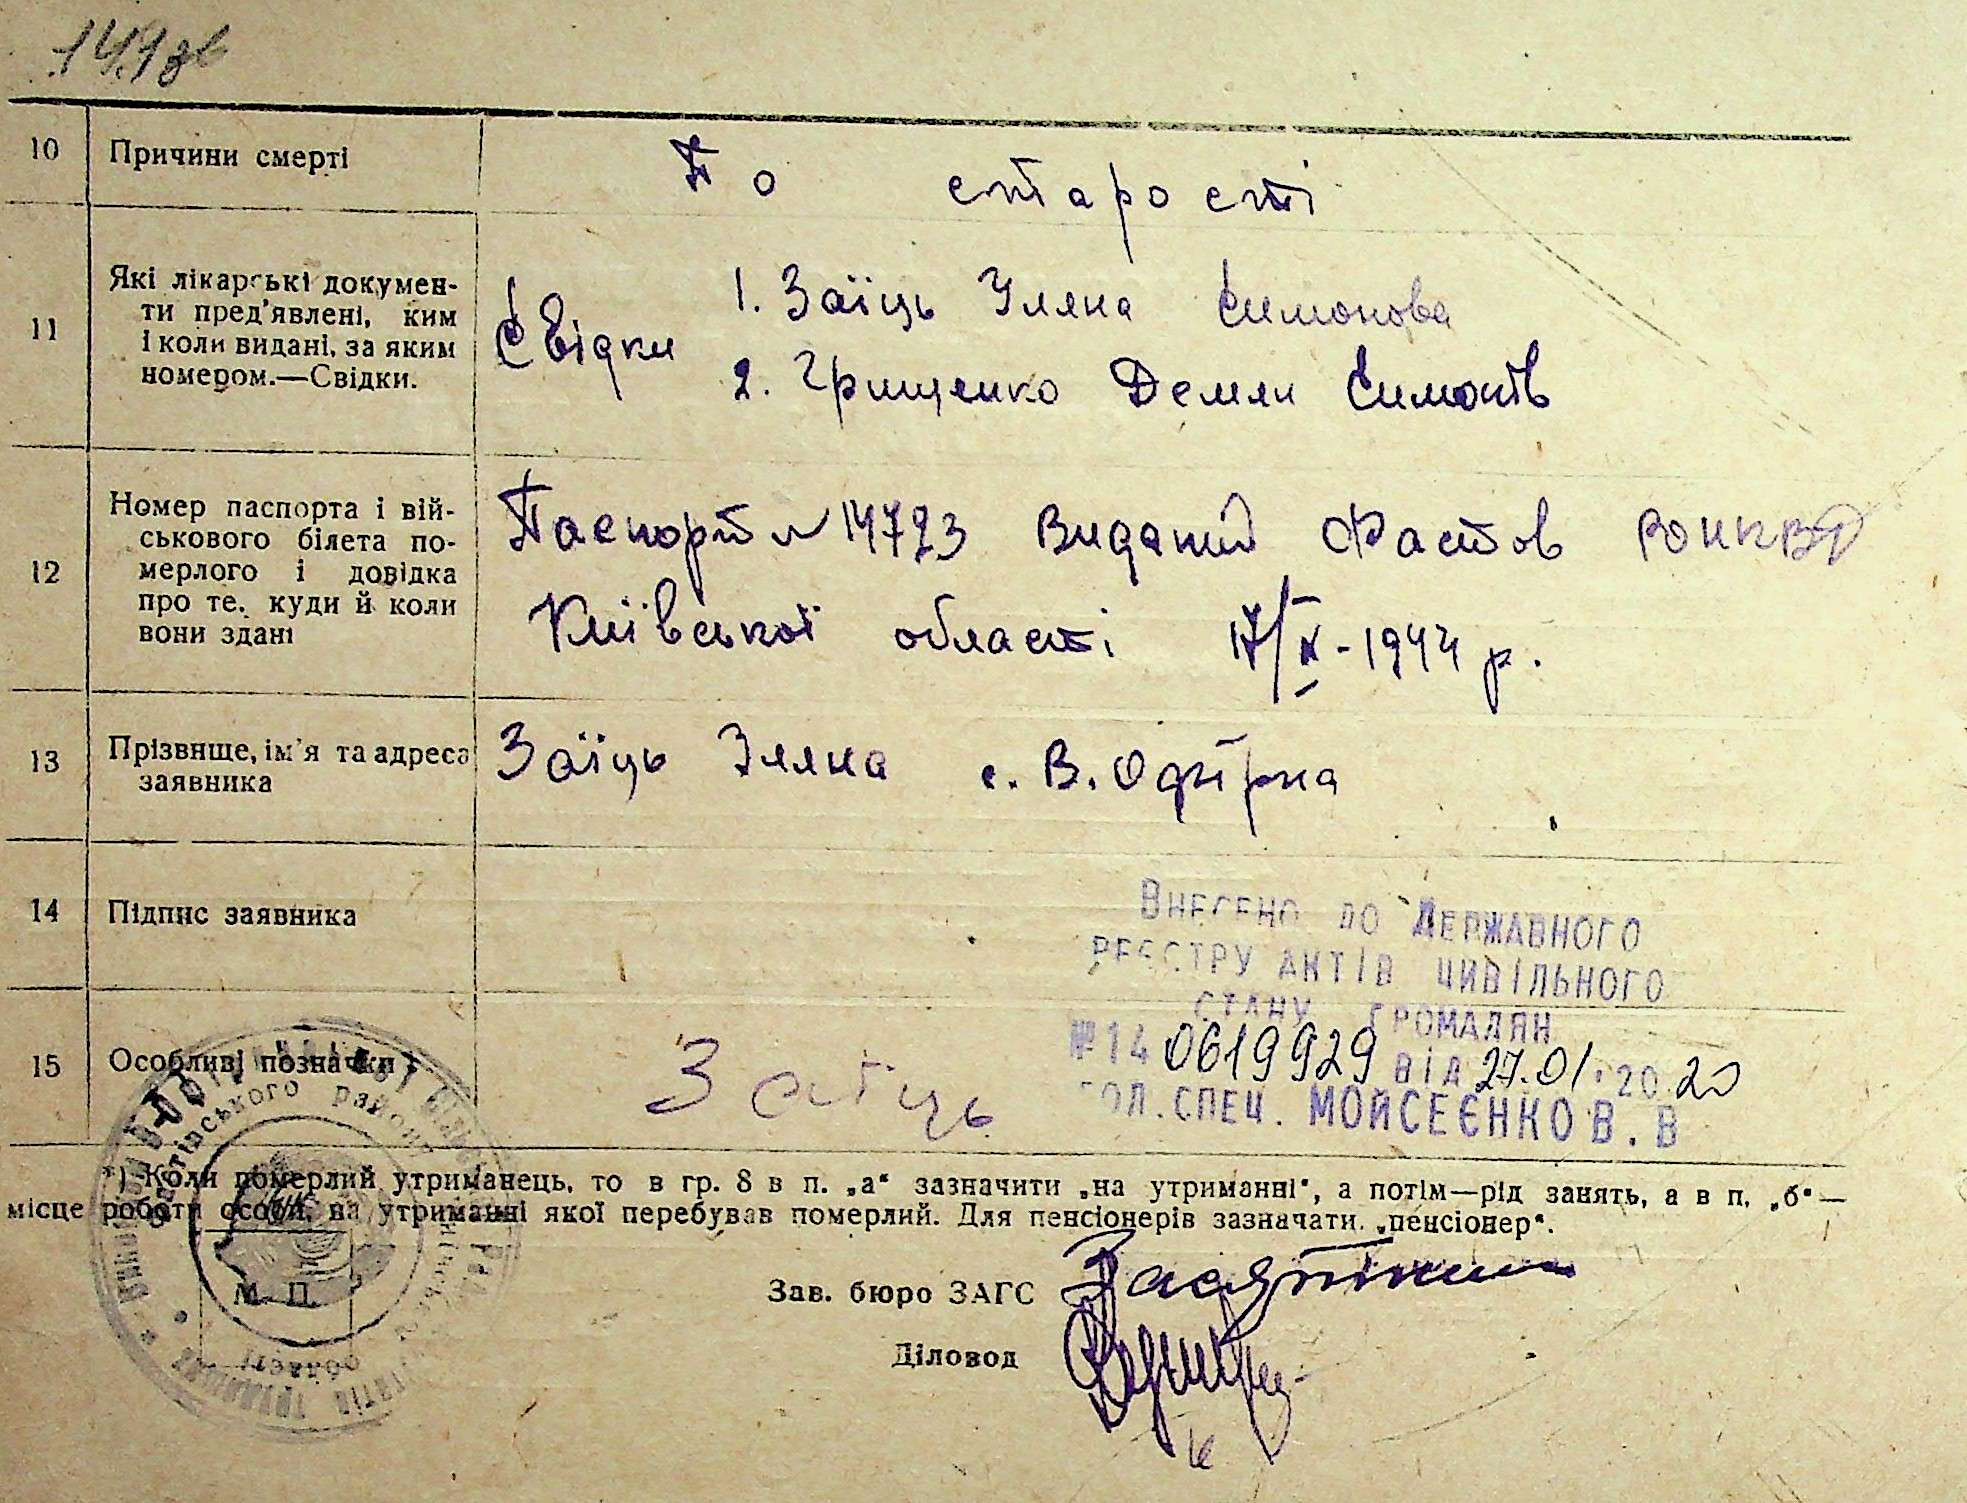 149зв
10 Причини смерті По старості
11 Які лікарські докумен-
ти пред'явлені, ким
і коли видані, за яким
номером.—Свідки.
Свідки 1. Заїць Уляна Симонова
2. Грищенко Демян Симонів
12 Номер паспорта і вій-
ськового білета по-
мерлого і довідка
про те, куди й коли
вони здані
Паспорт № 14723 Виданий Фастов РОНКВД
Київської області 17/X-1944 р.
13 Прізвище, ім'я та адреса
заявника
Заїць Уляна с. В. Офірна
14 Підпис заявника
15 Особливі позначки
Заїць
Внесено до Державного
реєстру актів цивільного
стану громадян
№14 0619929 від 27.01.2020
гол. спец. Мойсеєнко В. В
*) Коли померлий утриманець, то в гр. 8 в п. „а“ зазначити „на утриманні“, а потім—рід занять, а в п. „б“—
місце роботи особи, на утриманні якої перебував померлий. Для пенсіонерів зазначати „пенсіонер“.
М. П.
району
області
Зав. бюро ЗАГС
Діловод